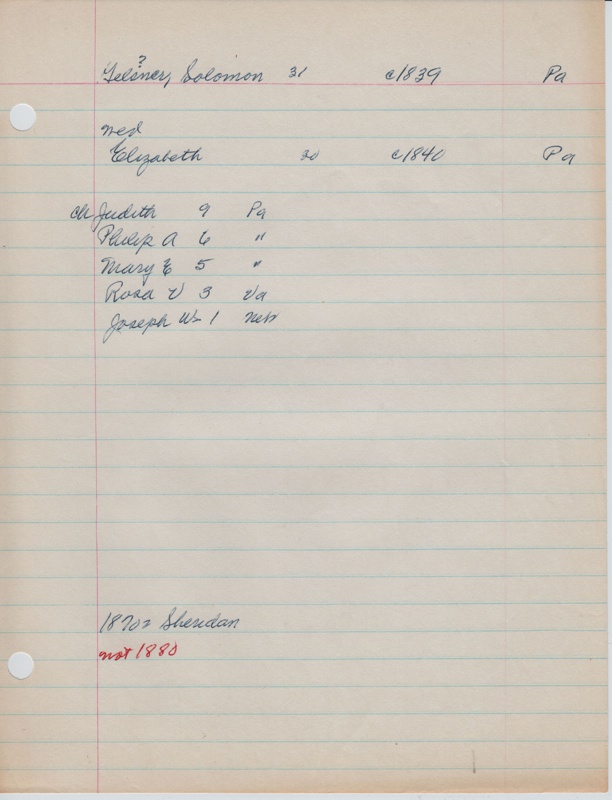 ?
Solomon 31 c1839 Pa
med
Elizabeth 30 c1840 Pa
ch Judith 9 Pa
Philip A 6 "
Mary E 5 "
Rosa V 3 Va
Joseph Wm 1 Neb
1870 = Sheridan
not 1880